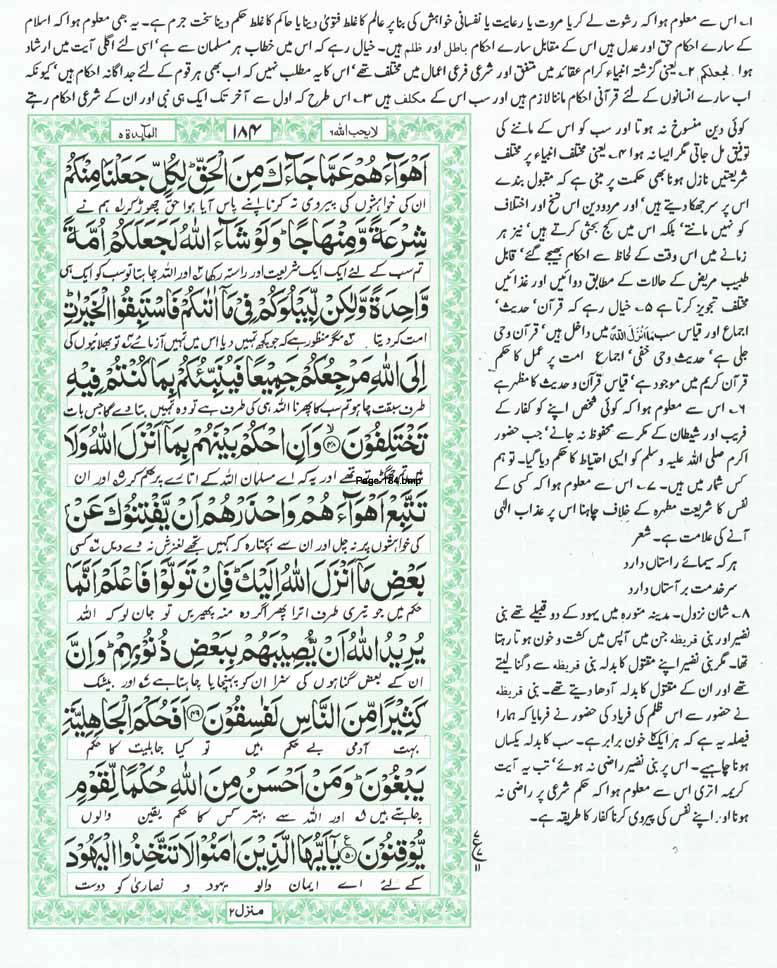 ۱۔ اس سے معلوم ہوا کہ رشوت لے کر یا مروت یا رعایت یا نفسانی خواہش کی بنا پر عالم کا غلط فتویٰ دینا یا حاکم کا غلط حکم دینا سخت جرم ہے۔ یہ بھی معلوم ہوا کہ اسلام
کے سارے احکام حق اور عدل ہیں اس کے مقابل سارے احکام باطل اور ظلم ہیں۔ خیال رہے کہ اس میں خطاب ہر مسلمان سے ہے' اسی لئے اگلی آیت میں ارشاد
ہوا لجعلکم ۲۔ یعنی گزشتہ انبیاء کرام عقائد میں متفق اور شرعی فرعی اعمال میں مختلف تھے' اس کا یہ مطلب نہیں کہ اب بھی ہر قوم کے لئے جداگانہ احکام ہیں' کیونکہ
اب سارے انسانوں کے لئے قرآنی احکام ماننا لازم ہیں اور سب اس کے مکلف ہیں ۳۔ اس طرح کہ اول سے آخر تک ایک ہی نبی اور ان کے شرعی احکام رہتے
کوئی دین منسوخ نہ ہوتا اور سب کو اس کے ماننے کی
توفیق مل جاتی مگر ایسا نہ ہوا ۴۔ یعنی مختلف انبیاء پر مختلف
شریعتیں نازل ہونا بھی حکمت پر مبنی ہے کہ مقبول بندے
اس پر سر جھکا دیتے ہیں' اور مردودین اس نسخ اور اختلاف
کو نہیں مانتے' بلکہ اس میں کج بحثی کرتے ہیں' نیز ہر
زمانے میں اس وقت کے لحاظ سے احکام بھیجے گئے' قابل
طبیب مریض کے حالات کے مطابق دوائیں اور غذائیں
مختلف تجویز کرتا ہے ۵۔ خیال رہے کہ قرآن' حدیث'
اجماع اور قیاس سب مَا اَنْزَلَ اللّٰہُ میں داخل ہیں' قرآن وحی
جلی ہے' حدیث وحی خفی' اجماع امت پر عمل کا حکم
قرآن کریم میں موجود ہے' قیاس قرآن و حدیث کا مظہر ہے
۶۔ اس سے معلوم ہوا کہ کوئی شخص اپنے کو کفار کے
فریب اور شیطان کے مکر سے محفوظ نہ جانے' جب حضور
اکرم صلی اللہ علیہ وسلم کو ایسی احتیاط کا حکم دیا گیا۔ تو ہم
کس شمار میں ہیں۔ ۷۔ اس سے معلوم ہوا کہ کسی کے
نفس کا شریعت مطہرہ کے خلاف چاہنا اس پر عذاب الٰہی
آنے کی علامت ہے۔ شعر
ہر کہ سیمائے راستاں دارد
سر خدمت بر آستاں دارد
۸۔ شان نزول۔ مدینہ منورہ میں یہود کے دو قبیلے تھے بنی
نضیر اور بنی قریظہ جن میں آپس میں کشت و خون ہوتا رہتا
تھا۔ مگر بنی نضیر اپنے مقتول کا بدلہ بنی قریظہ سے دگنا لیتے
تھے اور ان کے مقتول کا بدلہ آدھا دیتے تھے۔ بنی قریظہ
نے حضور سے اس ظلم کی فریاد کی حضور نے فرمایا کہ ہمارا
فیصلہ یہ ہے کہ ہر ایک کا خون برابر ہے۔ سب کا بدلہ یکساں
ہونا چاہیے۔ اس پر بنی نضیر راضی نہ ہوئے' تب یہ آیت
کریمہ اتری اس سے معلوم ہوا کہ حکم شرعی پر راضی نہ
ہونا اور اپنے نفس کی پیروی کرنا کفار کا طریقہ ہے۔
لا یحب اللہ ۶
۱۸۴
المآئدۃ ۵
اَهْوَآءَهُمْ عَمَّا جَآءَكَ مِنَ الْحَقِّ ؕ لِكُلٍّ جَعَلْنَا مِنْكُمْ
ان کی خواہشوں کی پیروی نہ کرنا اپنے پاس آیا ہوا حق چھوڑ کر لہ ہم نے
شِرْعَةً وَّمِنْهَاجًا ؕ وَلَوْ شَآءَ اللّٰهُ لَجَعَلَكُمْ اُمَّةً
تم سب کے لئے ایک ایک شریعت اور راستہ رکھا ۲ اور اللہ چاہتا تو سب کو ایک ہی
وَّاحِدَةً وَّلٰكِنْ لِّيَبْلُوَكُمْ فِيْ مَآ اٰتٰىكُمْ فَاسْتَبِقُوا الْخَيْرٰتِ ؕ
امت کر دیتا ۳ مگر منظور ہے کہ جو کچھ تمہیں دیا اس میں تمہیں آزمائے ۴ تو بھلائیوں کی
اِلَى اللّٰهِ مَرْجِعُكُمْ جَمِيْعًا فَيُنَبِّئُكُمْ بِمَا كُنْتُمْ فِيْهِ
طرف سبقت چاہو تم سب کا پھرنا اللہ ہی کی طرف ہے تو وہ تمہیں بتا دے گا جس بات
تَخْتَلِفُوْنَ ۙ۴۸ وَاَنِ احْكُمْ بَيْنَهُمْ بِمَآ اَنْزَلَ اللّٰهُ وَلَا
میں تم جھگڑتے تھے اور یہ کہ اے مسلمان اللہ کے اتارے پر حکم کر ۵ اور ان
Page-184.bmp
تَتَّبِعْ اَهْوَآءَهُمْ وَاحْذَرْهُمْ اَنْ يَّفْتِنُوْكَ عَنْۢ
کی خواہشوں پر نہ چل اور ان سے بچتا رہ کہ کہیں تجھے لغزش نہ دے دیں ۶ کسی
بَعْضِ مَآ اَنْزَلَ اللّٰهُ اِلَيْكَ ؕ فَاِنْ تَوَلَّوْا فَاعْلَمْ اَنَّمَا
حکم میں جو تیری طرف اترا پھر اگر وہ منہ پھیریں تو جان لو کہ اللہ
يُرِيْدُ اللّٰهُ اَنْ يُّصِيْبَهُمْ بِبَعْضِ ذُنُوْبِهِمْ ؕ وَاِنَّ
ان کے بعض گناہوں کی سزا ان کو پہنچایا چاہتا ہے ۷ اور بیشک
كَثِيْرًا مِّنَ النَّاسِ لَفٰسِقُوْنَ ۴۹ اَفَحُكْمَ الْجَاهِلِيَّةِ
بہت آدمی بے حکم ہیں تو کیا جاہلیت کا حکم
يَبْغُوْنَ ؕ وَمَنْ اَحْسَنُ مِنَ اللّٰهِ حُكْمًا لِّقَوْمٍ
چاہتے ہیں ۸ اور اللہ سے بہتر کس کا حکم یقین والوں
يُّوْقِنُوْنَ ۵۰ يٰٓاَيُّهَا الَّذِيْنَ اٰمَنُوْا لَا تَتَّخِذُوا الْيَهُوْدَ
کے لئے اے ایمان والو یہود و نصاریٰ کو دوست
منزل ۲